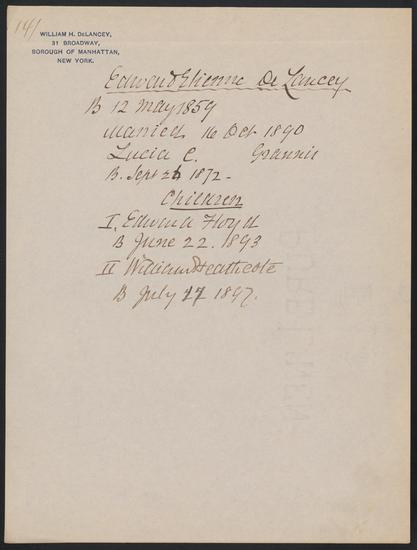 141
WILLIAM H. DELANCEY,
31 BROADWAY,
BOROUGH OF MANHATTAN,
NEW YORK.
Edward Etienne De Lancey
B 12 May 1859
Married 16 Oct 1890
Lucia C. Grannis
B. Sept 26 1872-
Children
I. Edward Floyd
B June 22. 1893
II William Heathcote
B July 27 1897.